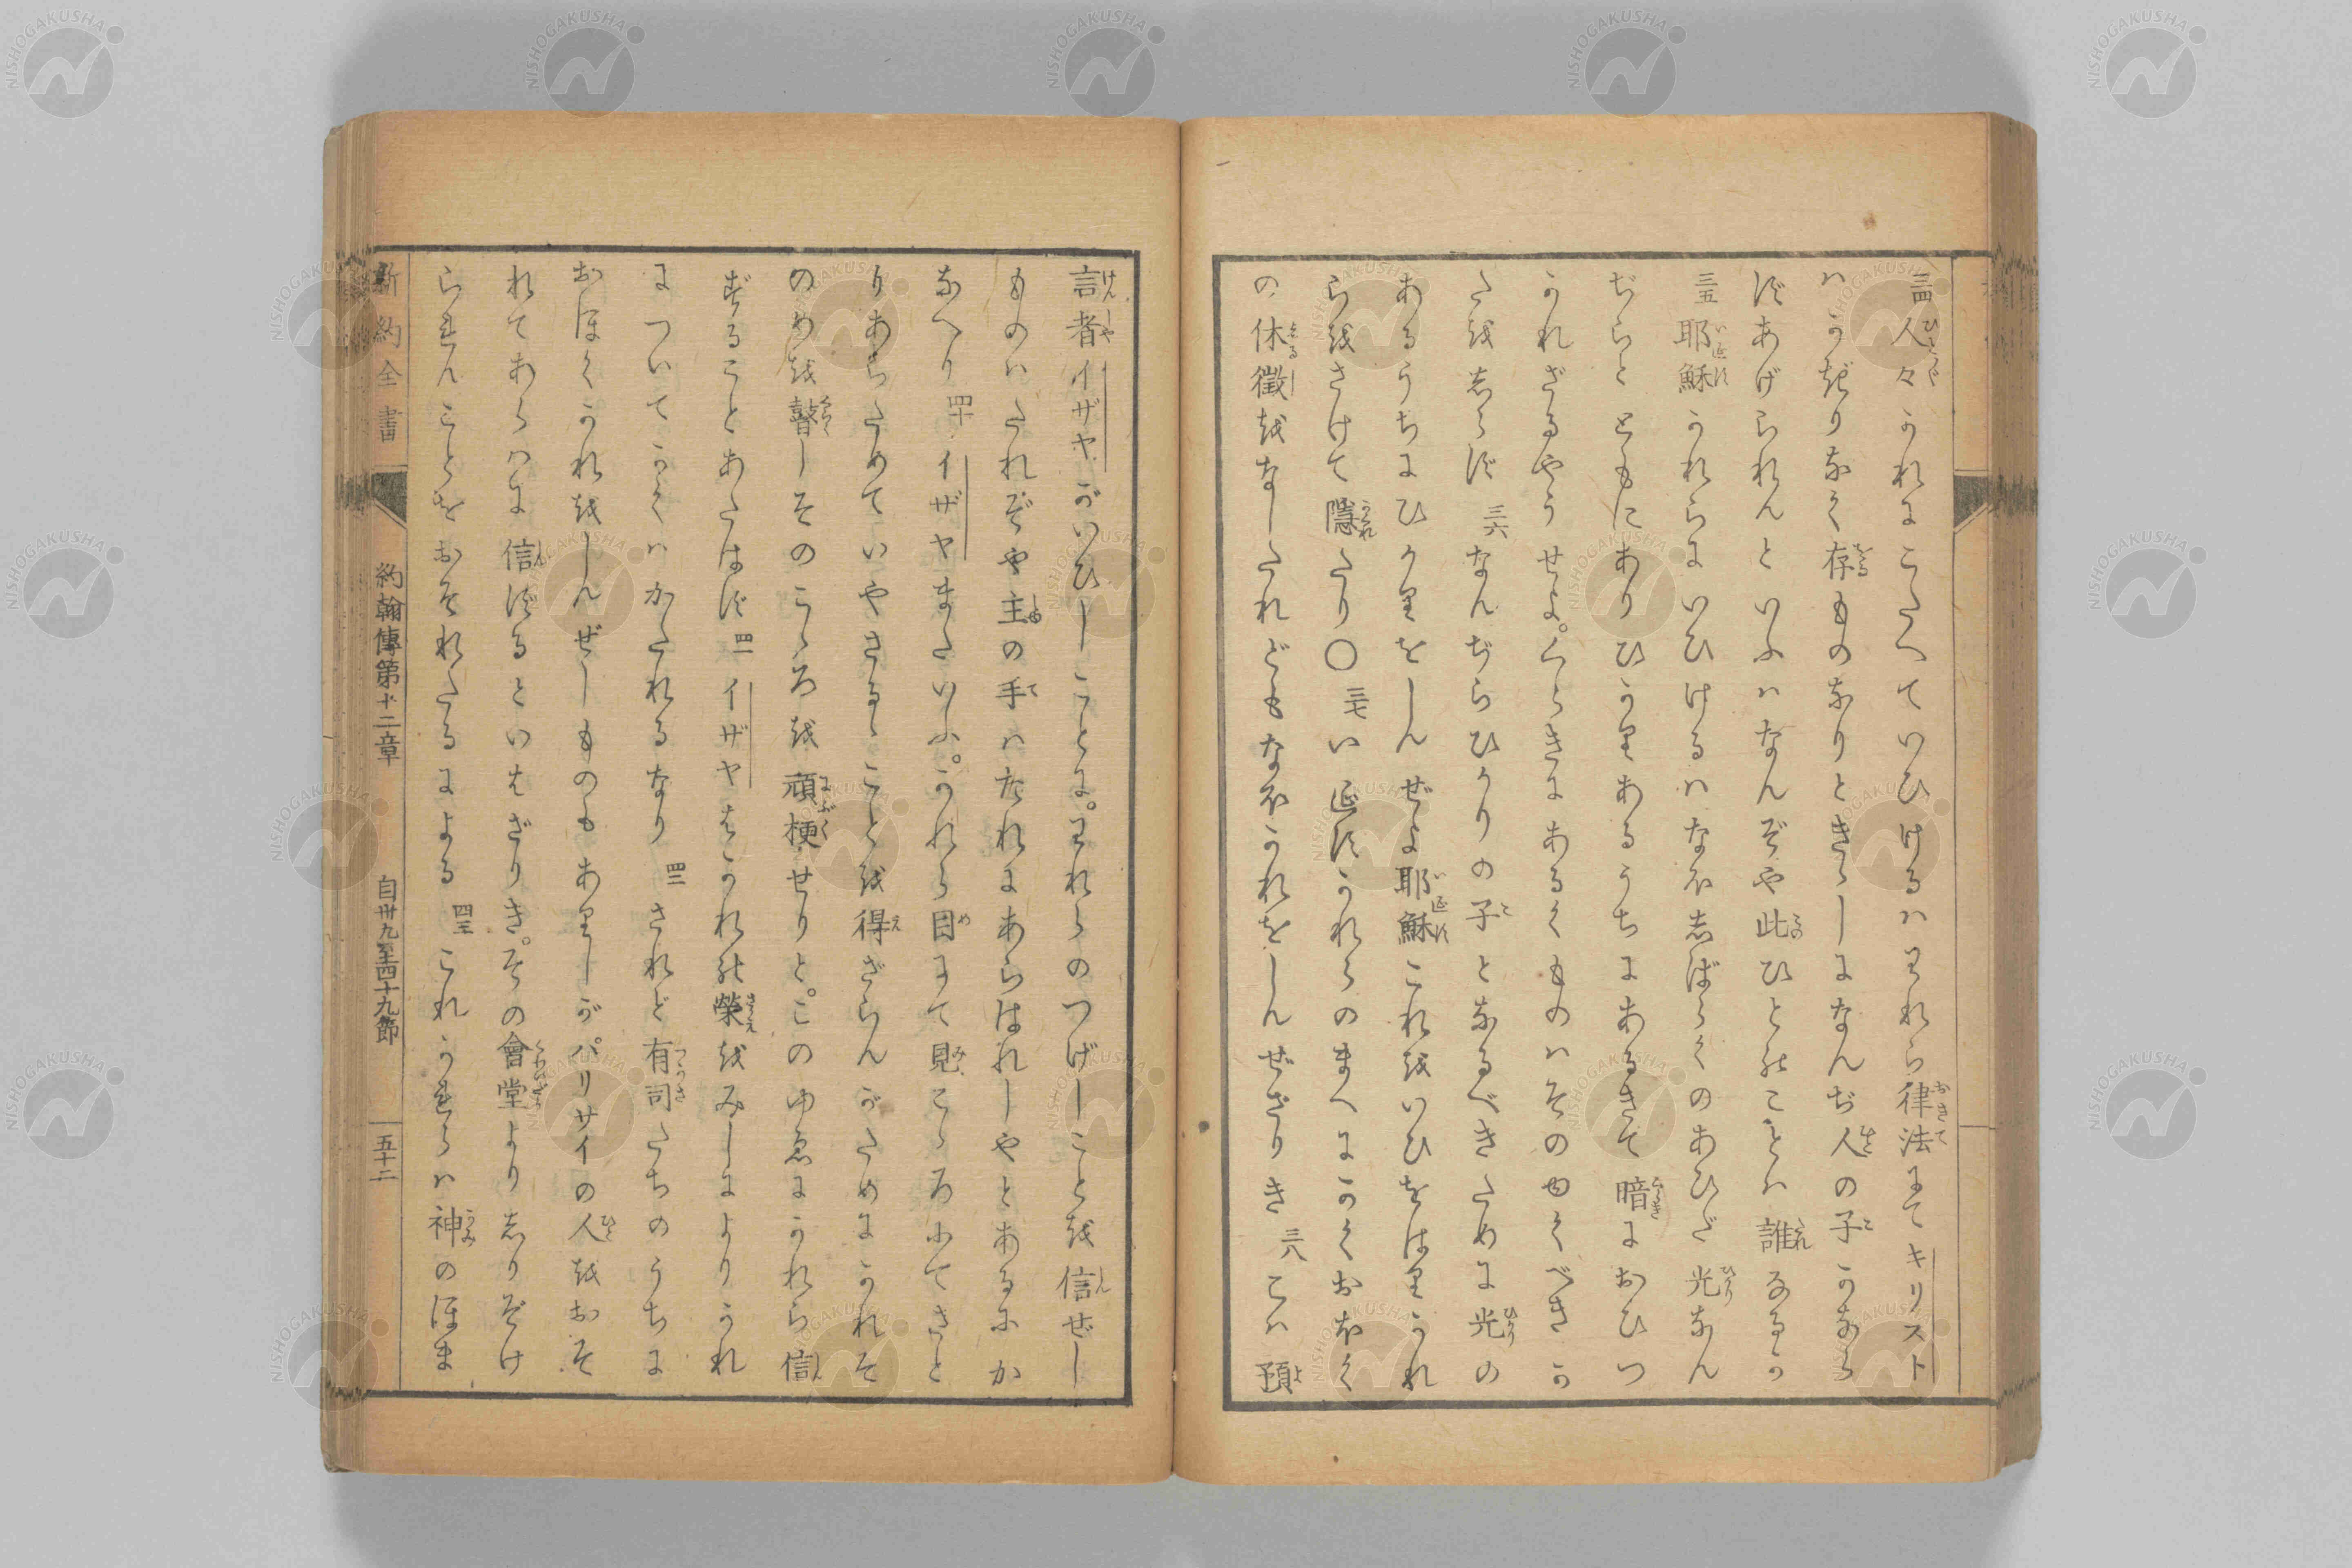 三四人々かれにこたへていひけるハわれら律法にてキリスト
ハかぎりなく存ものなりときゝしになんぢ人の子かなら
ずあげられんといふハなんぞや此ひとのことハ誰なるか
三五耶穌かれらにいひけるハなほ志ばらくのあひだ光なん
ぢらとともにありひかりあるうちにあるきて暗におひつ
かれざるやうせよ。くらきにあるくものハその由くべきか
たを志らず 三六なんぢらひかりの子となるべきために光の
あるうちにひかりをしんぜよ耶穌これをいひをはりかれ
らをさけて隠たり〇三七いゑすかれらのまへにかくおほく
の休徴をなしたれどもなほかれをしんぜざりき 三八こハ預
言者イザヤがいひしことに。われらのつげしことを信ぜし
ものハたれぞや主の手ハたれにあらはれしやとあるにか
なへり 四十イザヤまたいふ。かれら目にて見こゝろにてさと
りあらためていやさるゝことを得ざらんがためにかれそ
のめを瞽しそのこゝろを頑梗せりと。このゆゑにかれら信
ずることあたはず 四一イザヤはかれの榮をみしによりかれ
についてかくハかたれるなり 四二されど有司たちのうちに
おほくかれをしんぜしものもありしがパリサイの人をおそ
れてあらハに信ずるといはざりき。その會堂より志りぞけ
られんことをおそれたるによる 四三これかれらハ神のほま
新約全書
約翰傳第十二章
自卅九至四十九節
五十二